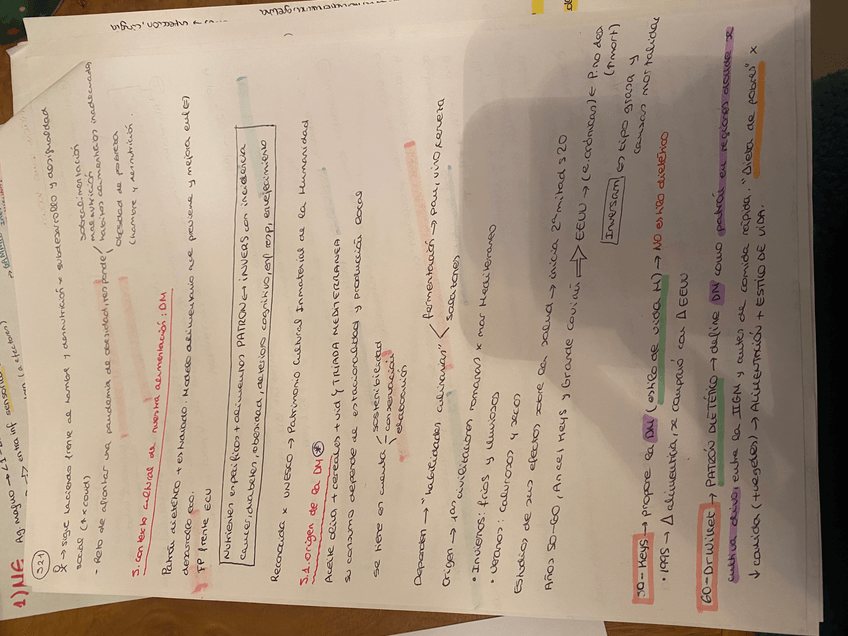 1) NE
Ag magno →
S21
→ sigue luciendo frente al hambre y desnutrición × subdesarrollo y desigualdad
social (↑× covid)
- Reto de afrontar una pandemia de obesidad, responde
sobrealimentación
malnutrición
hábitos alimenticios inadecuados
obesidad de pobreza
(hambre y desnutrición.
5. contexto cultural de nuestra alimentación: DM
Patrón dietético + estudiado. Modelo alimentario que previene y mejora enf. es
desarrollo eco.
FP frente ECV
Nutrientes específicos + alimentos PATRON → INVERS con incidencia
cancer, diabetes, obesidad, deterioro cognitivo, enf resp, envejecimiento
Reconocida × UNESCO → Patrimonio Cultural Inmaterial de la Humanidad
5.1. origen de la DM
Aceite oliva + cereales + vid } TRIADA MEDITERRANEA
Su consumo depende de estacionalidad y producción local
se tiene en cuenta
sostenibilidad
conservación
elaboración
Dependen → "habilidades culinarias"
fermentación → pan, vino, cerveza
salazones
Origen → 1as civilizaciones romanas × mar Mediterráneo
• Inviernos: fríos y lluviosos
• Verano: calurosos y secos
Estudios de sus efectos sobre la salud → inicia 2ª mitad s20
Años 50-60, Ancel Keys y Grande Covián ⇒ EEUU → (e.crónicas) ← P. no des
(↑mort)
Inversan es tipo grasa y
causas mortalidad
50 - Keys → propone la DM (estilo de vida M) → NO estilo dietético
• 1995 → Δ alimentaria, × comparó con Δ EEUU
60 - Dr Willet → PATRÓN DIETÉTICO → define DM como patrón en regiones donde se
cultiva olivo, entre la IIGM y antes de comida rápida. "Dieta de pobres" ×
↓ comida (+ vegetales) → ALIMENTACIÓN + ESTILO DE VIDA.